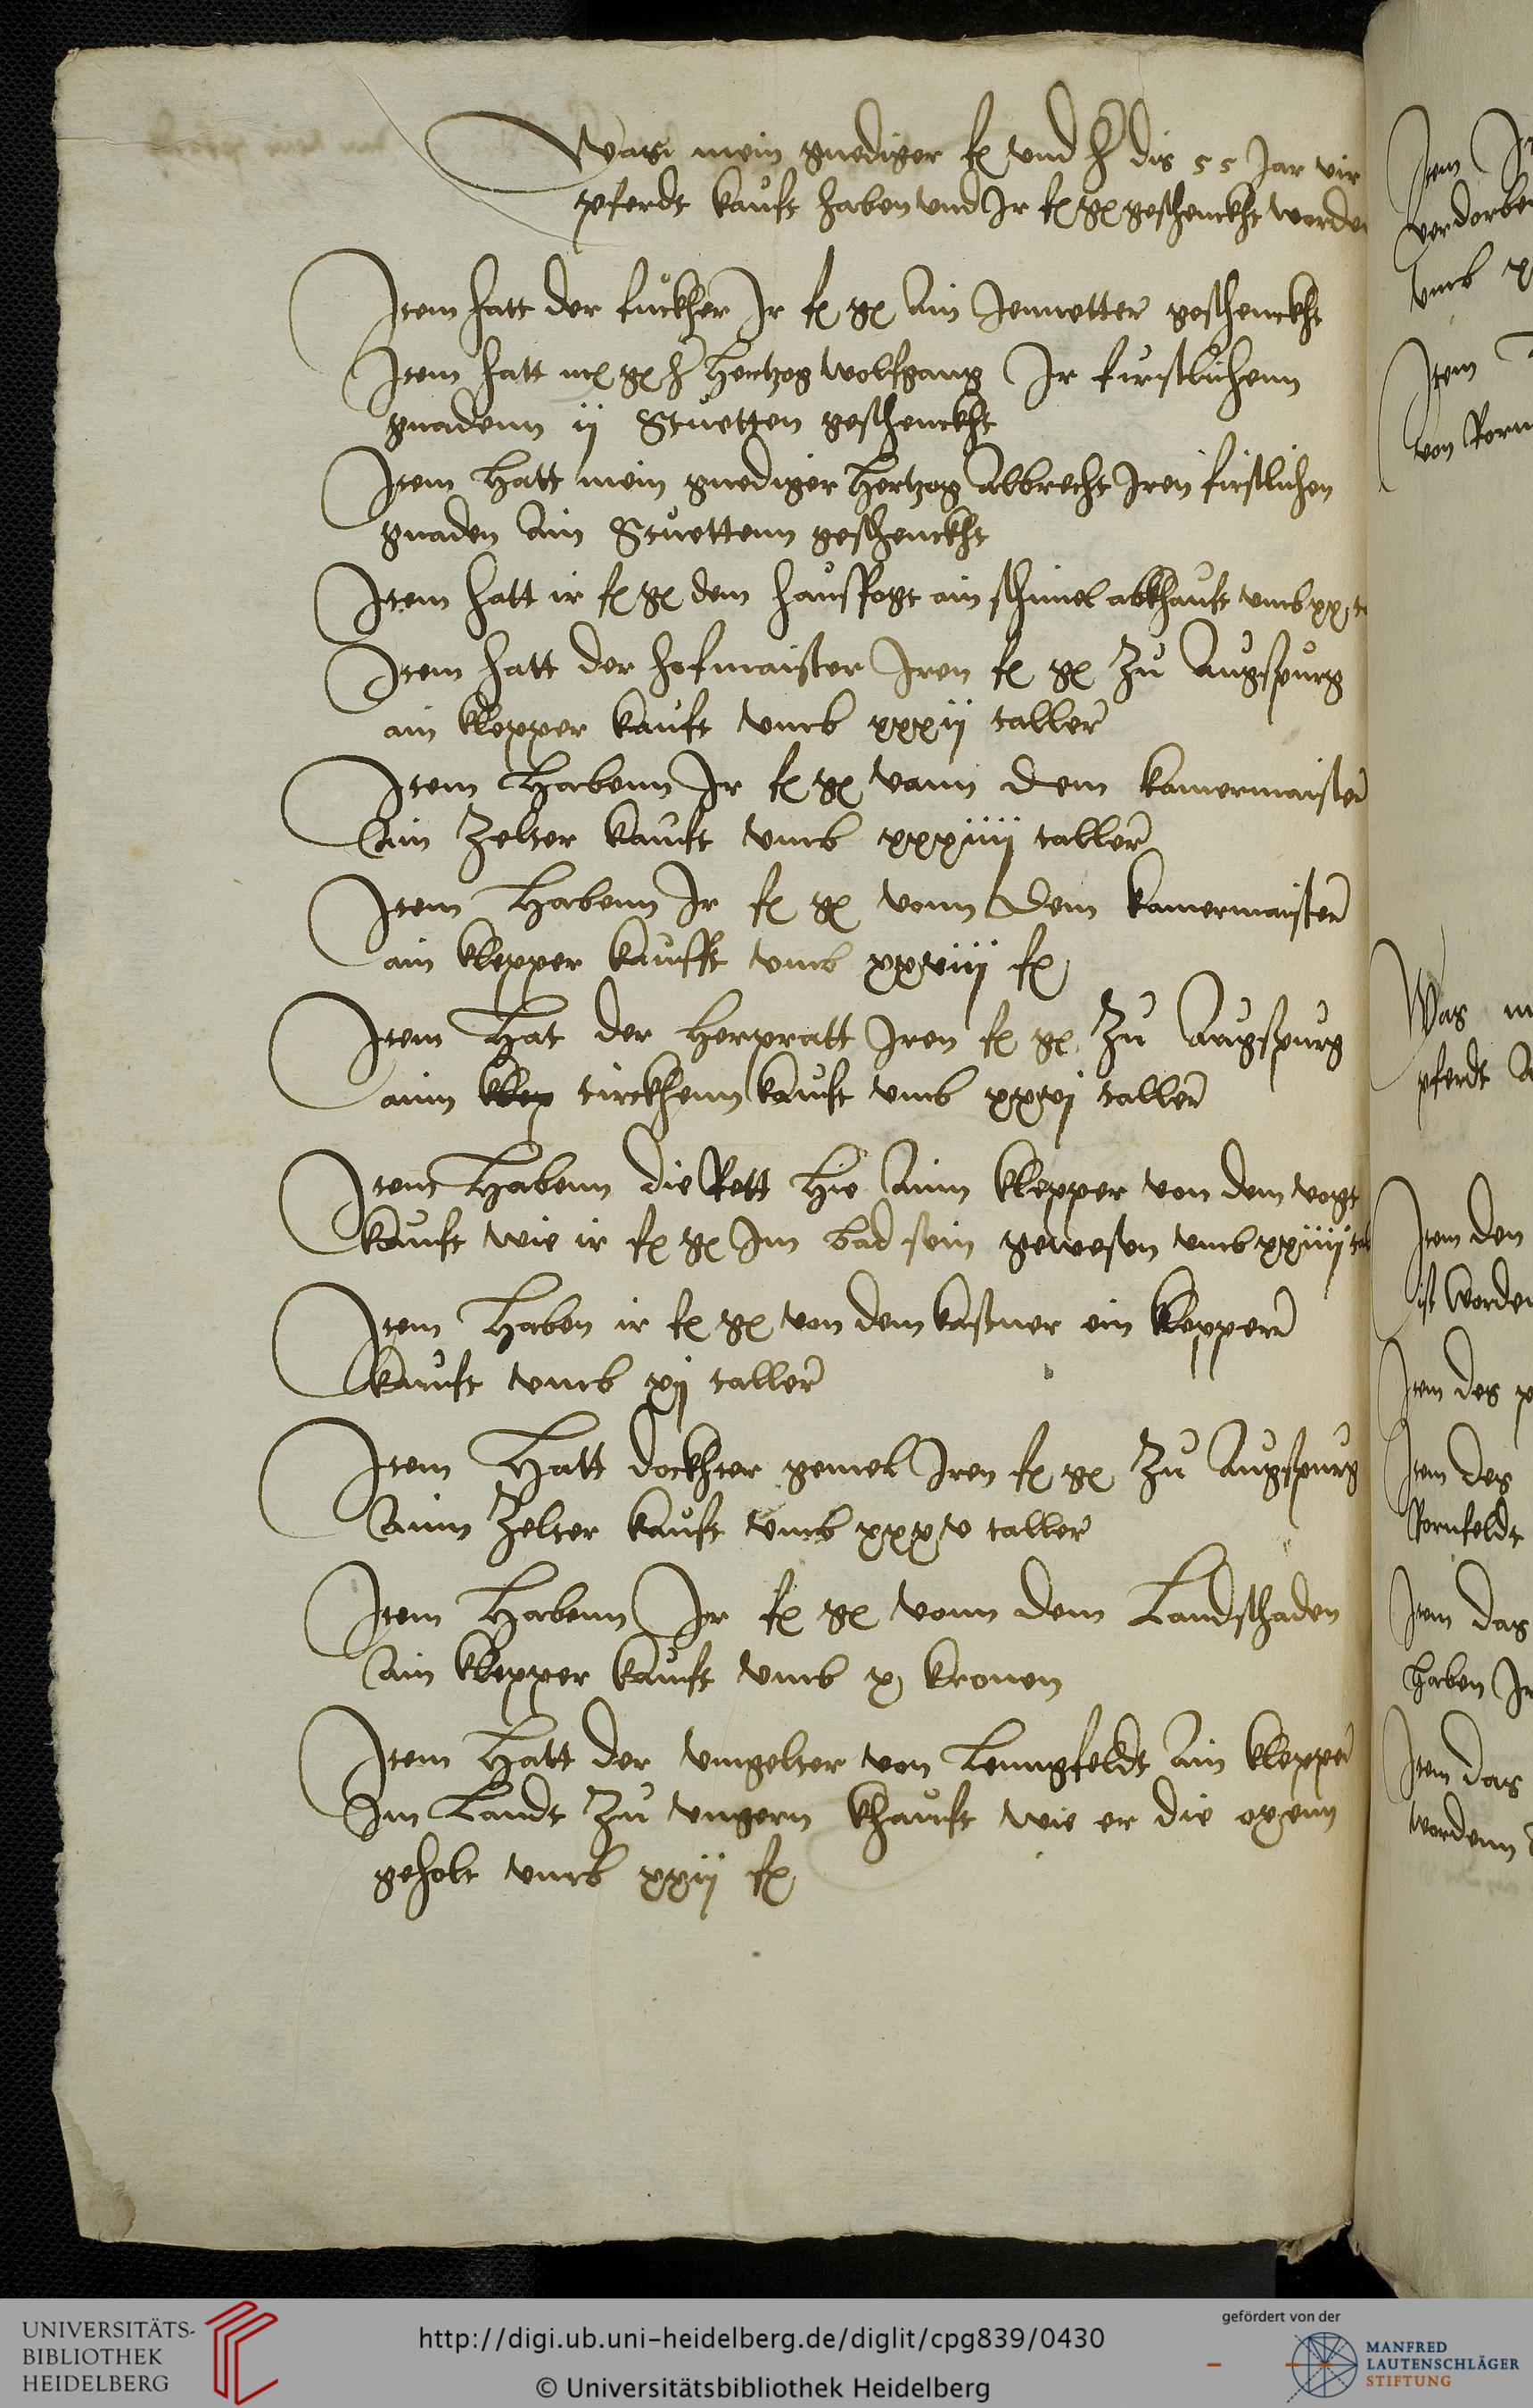 Was mein gnediger f und h dis 55 Jar vir
pferdt kauft haben und Ir f g geschenckht worde
Item hatt der fuckher Ir f g Ain Jennetter geschenckht
Item hatt m g h hertzog wolfgang Ir furstlichenn
gnadenn ij Stuetten geschenckht
Item hatt mein gnediger hertzog Albrecht Iren firstlichen
gnaden Ain Stuettenn geschenckht
Item hatt ir f g dem hausfogt ain schimel abkhauft umb xx t
Item hatt der hofmaister Iren f g zu Augspurg
ain klepper kauft umb xxxij taller
Item habenn Ir f g vann dem kamermaister
Ain zelter kauft umb xxxiiij taller
Item habenn Ir f g vonn dem kamermaister
ain klepper kaufft umb xxviij f
Item hat der herpratt Iren f g zu Augspurg
ainn klep tirckhenn kauft umb xxvj taller
Item habenn die Rett hie Ainn klepper von dem vogt
kauft wie ir f g Im bad sein gewesen umb xxiiij ta
Item haben ir f g von dem kastner ein klepper
kauft umb xij taller
Item hatt dockhter gemel Iren f g zu Augspurg
Ainn zelter kauft umb xxxv taller
Item habenn Ir f g vonn dem Landschaden
Ain klepper kauft umb x kronen
Item hatt der umgelter von Lenngfeldt Ain klepper
Im Landt zu ungern khauft wie er die oxenn
geholt umb xxij f
Item
verdorbe
umb
Item
von
Was
pferdt
Item den
ist worde
Item des
Item des
Kornfeldt
Item das
haben Ir
Item das
wordenn
UNIVERSITÄTS-
BIBLIOTHEK
HEIDELBERG
http://digi.ub.uni-heidelberg.de/diglit/cpg839/0430
© Universitätsbibliothek Heidelberg
gefördert von der
MANFRED
LAUTENSCHLÄGER
STIFTUNG